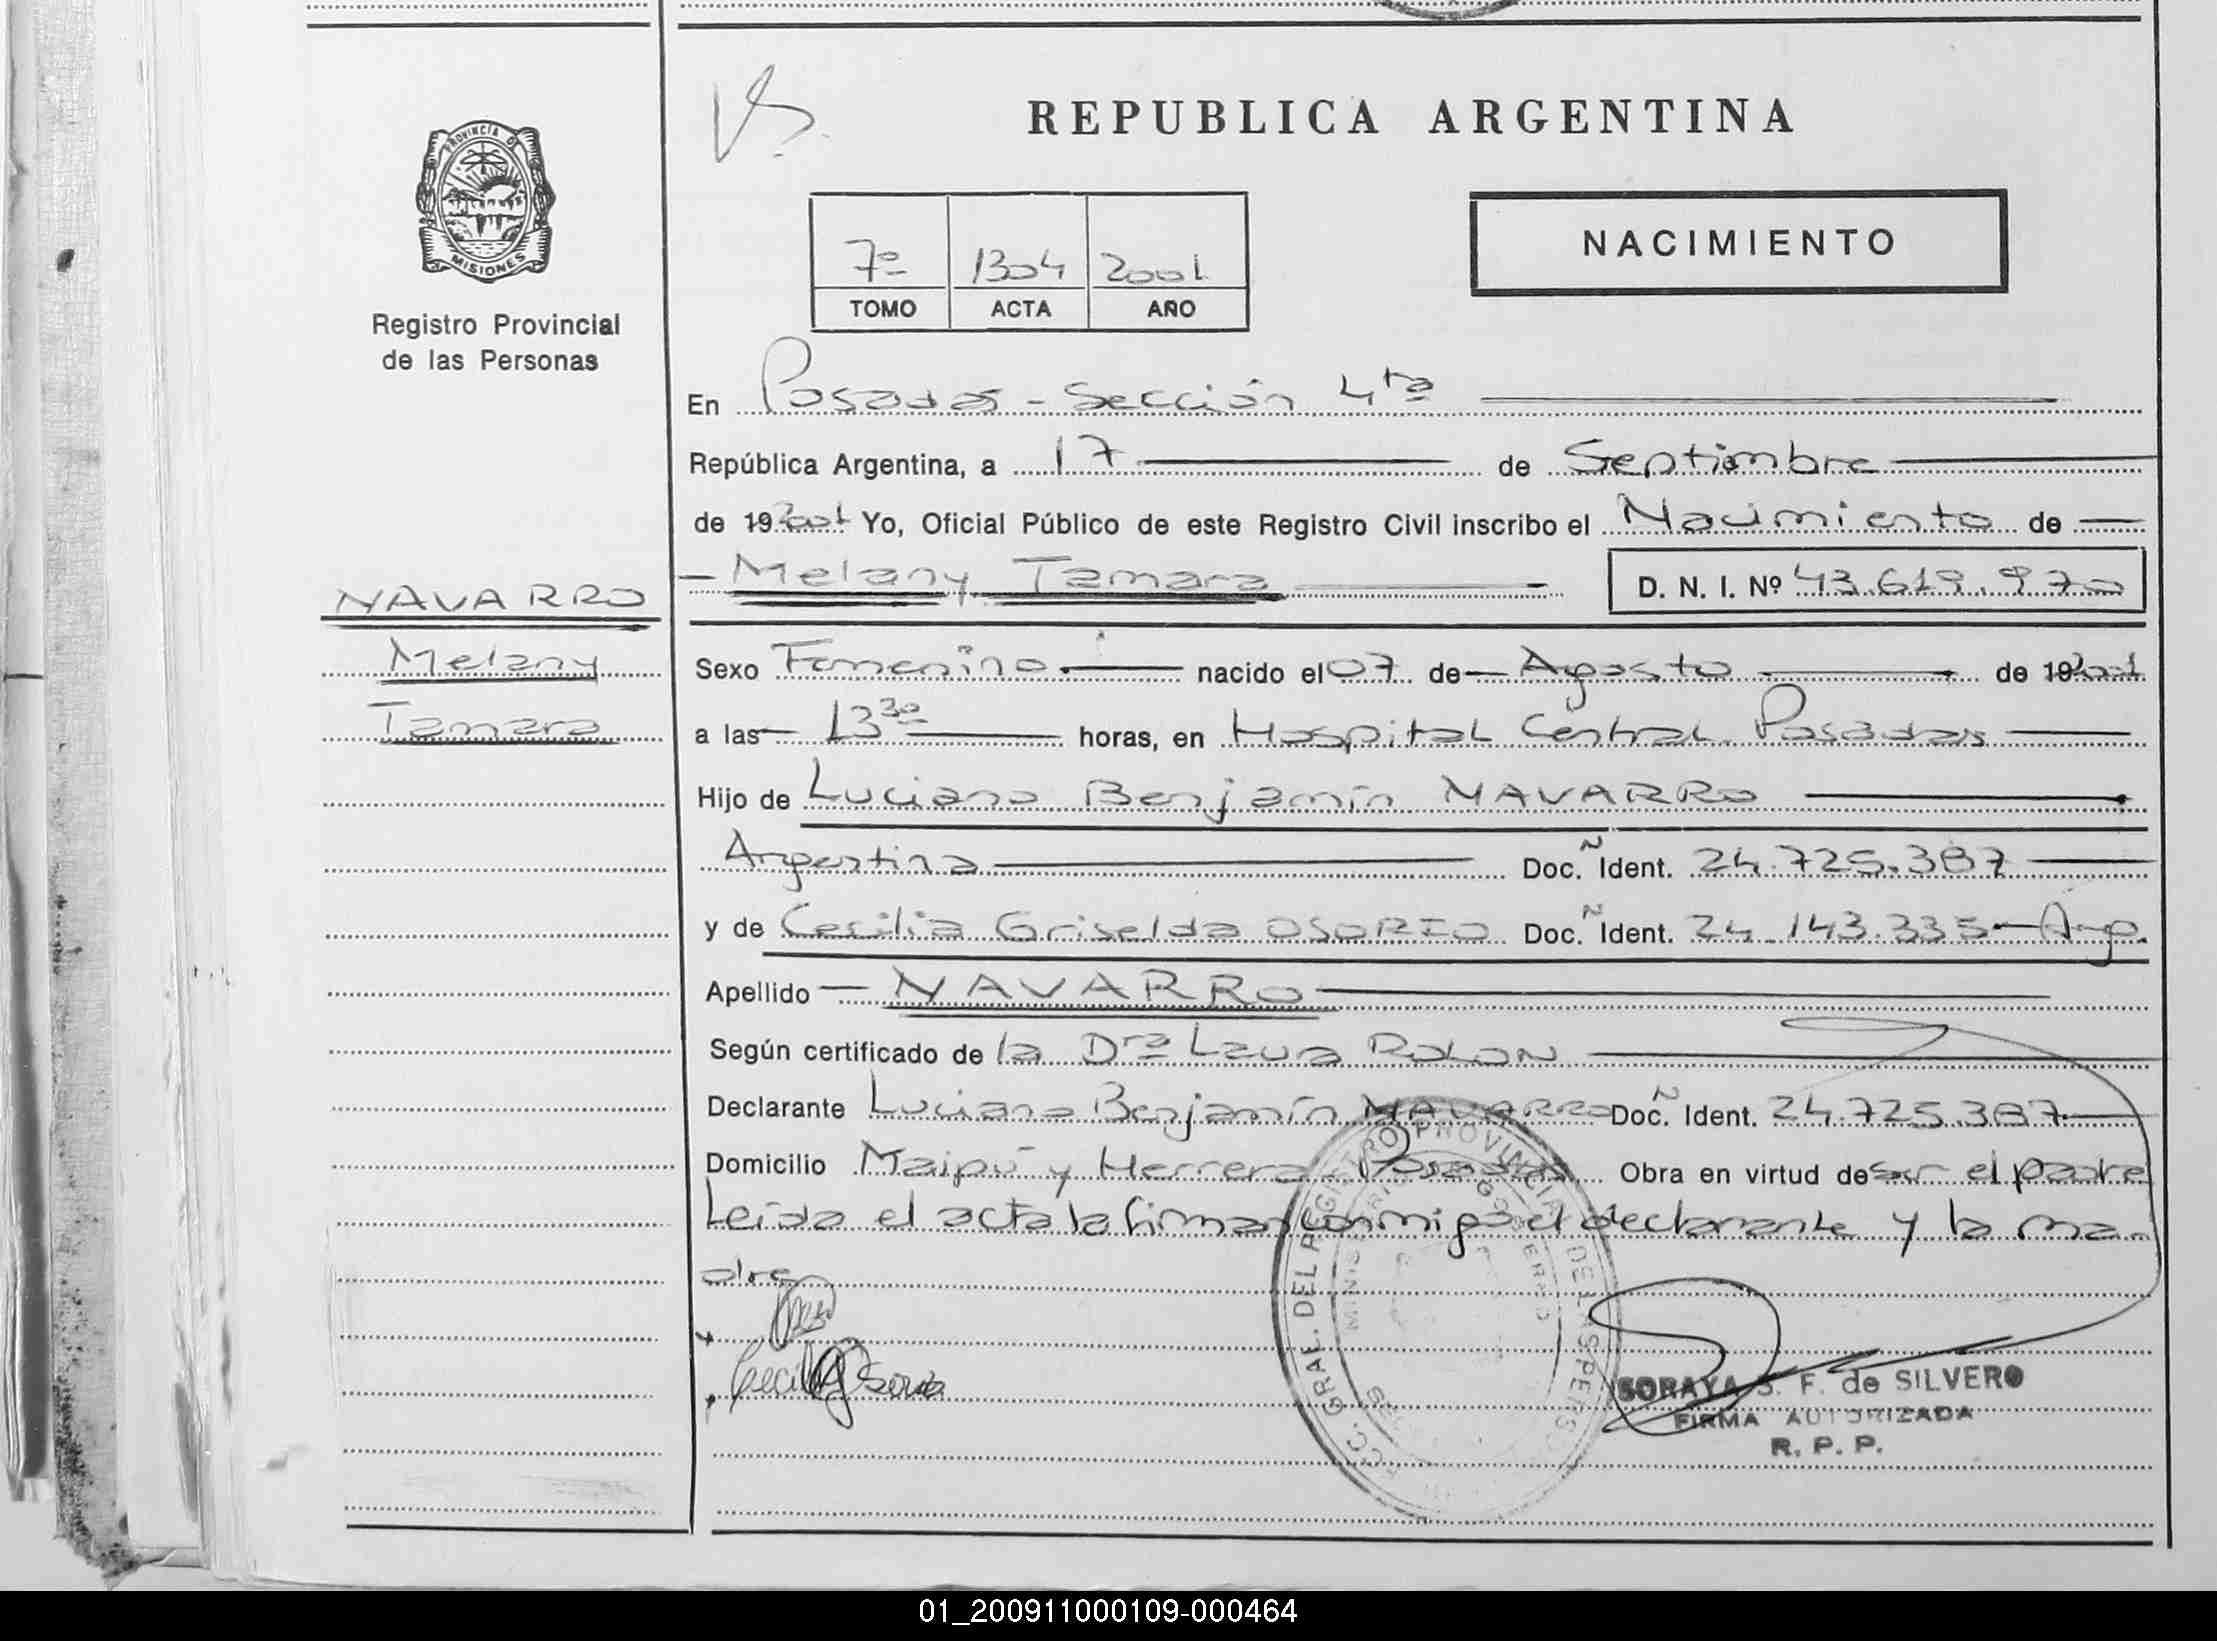 REPUBLICA ARGENTINA
PROVINCIA DE
MISIONES
Registro Provincial
de las Personas
NACIMIENTO
7º 1304 2001
TOMO ACTA AÑO
En Posadas - Sección 4ta
República Argentina, a 17 de Septiembre
de 19 2001 Yo, Oficial Público de este Registro Civil inscribo el Nacimiento de
Melany Tamara D. N. I. Nº 43.619.970
NAVARRO
Melany
Tamara
Sexo Femenino nacido el 07 de Agosto de 19 2001
a las 13 30 horas, en Hospital Central Posadas
Hijo de Luciano Benjamín NAVARRO
Argentina Doc. Ñ Ident. 24.725.387
y de Cecilia Griselda OSORIO Doc. Ñ Ident. 24.143.335 - Arg.
Apellido NAVARRO
Según certificado de la Dra Laura ROLON
Declarante Luciano Benjamín NAVARRO Doc. Ñ Ident. 24.725.387
Domicilio Maipú y Herrera Posadas Obra en virtud de ser el padre
Leída el acta la firman conmigo el declarante y la ma-
dre
Cecilia
GRAL. DEL REGISTRO PROVINCIAL DE LAS PERSO
MINISTERIO GOBIERNO
SORAYA S. F. de SILVERO
FIRMA AUTORIZADA
R. P. P.
01_200911000109-000464